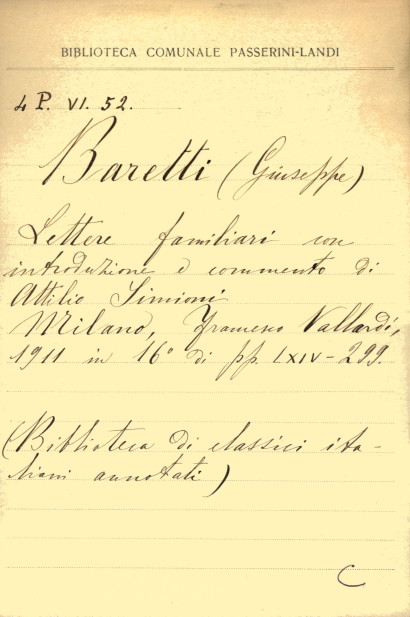 BIBLIOTECA COMUNALE PASSERINI-LANDI
4 P. VI. 52.
Baretti (Giuseppe)
Lettere familiari con
introduzione e commento di
Attilio Simioni
Milano, Francesco Vallardi,
1911 in 16° di pp. LXIV - 299.
(Biblioteca di classici ita-
liani annotati)
C